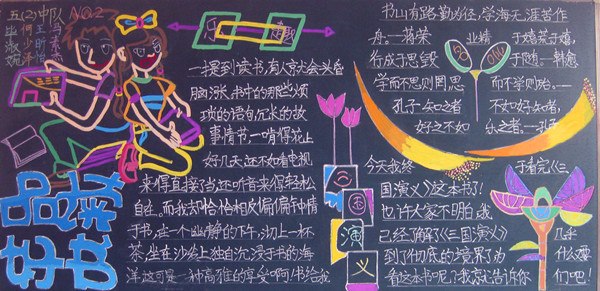 五(2)中队 NO.2
品味
好书
乐
一提到读书,有人就会头昏
脑涨,书中的那些烦
琐的语句,冗长的故
事情节,一啃得花上
好几天,还不如看电视
来得直接了当,还听音来得轻松
自在。而我却恰恰相反,偏偏钟情
于书,在一个幽静的下午,沏上一杯
茶,坐在沙台上独自沉浸于书的海
洋,这可是一种高雅的享受啊!书给我
三国演义
书山有路勤为径,学海无涯苦作
舟。——韩荣
业精于勤荒于嬉,
行成于思毁于随。——韩愈
学而不思则罔,思而不学则殆。——
孔子
知之者不如好知者,
好之不如乐之者。——孔子
今天我终于看完《三
国演义》这本书了!
也许大家不明白,我
已经了解了《三国演义》几乎
到了彻底的境界了,为什么要
看这本书呢?我就告诉你们吧!